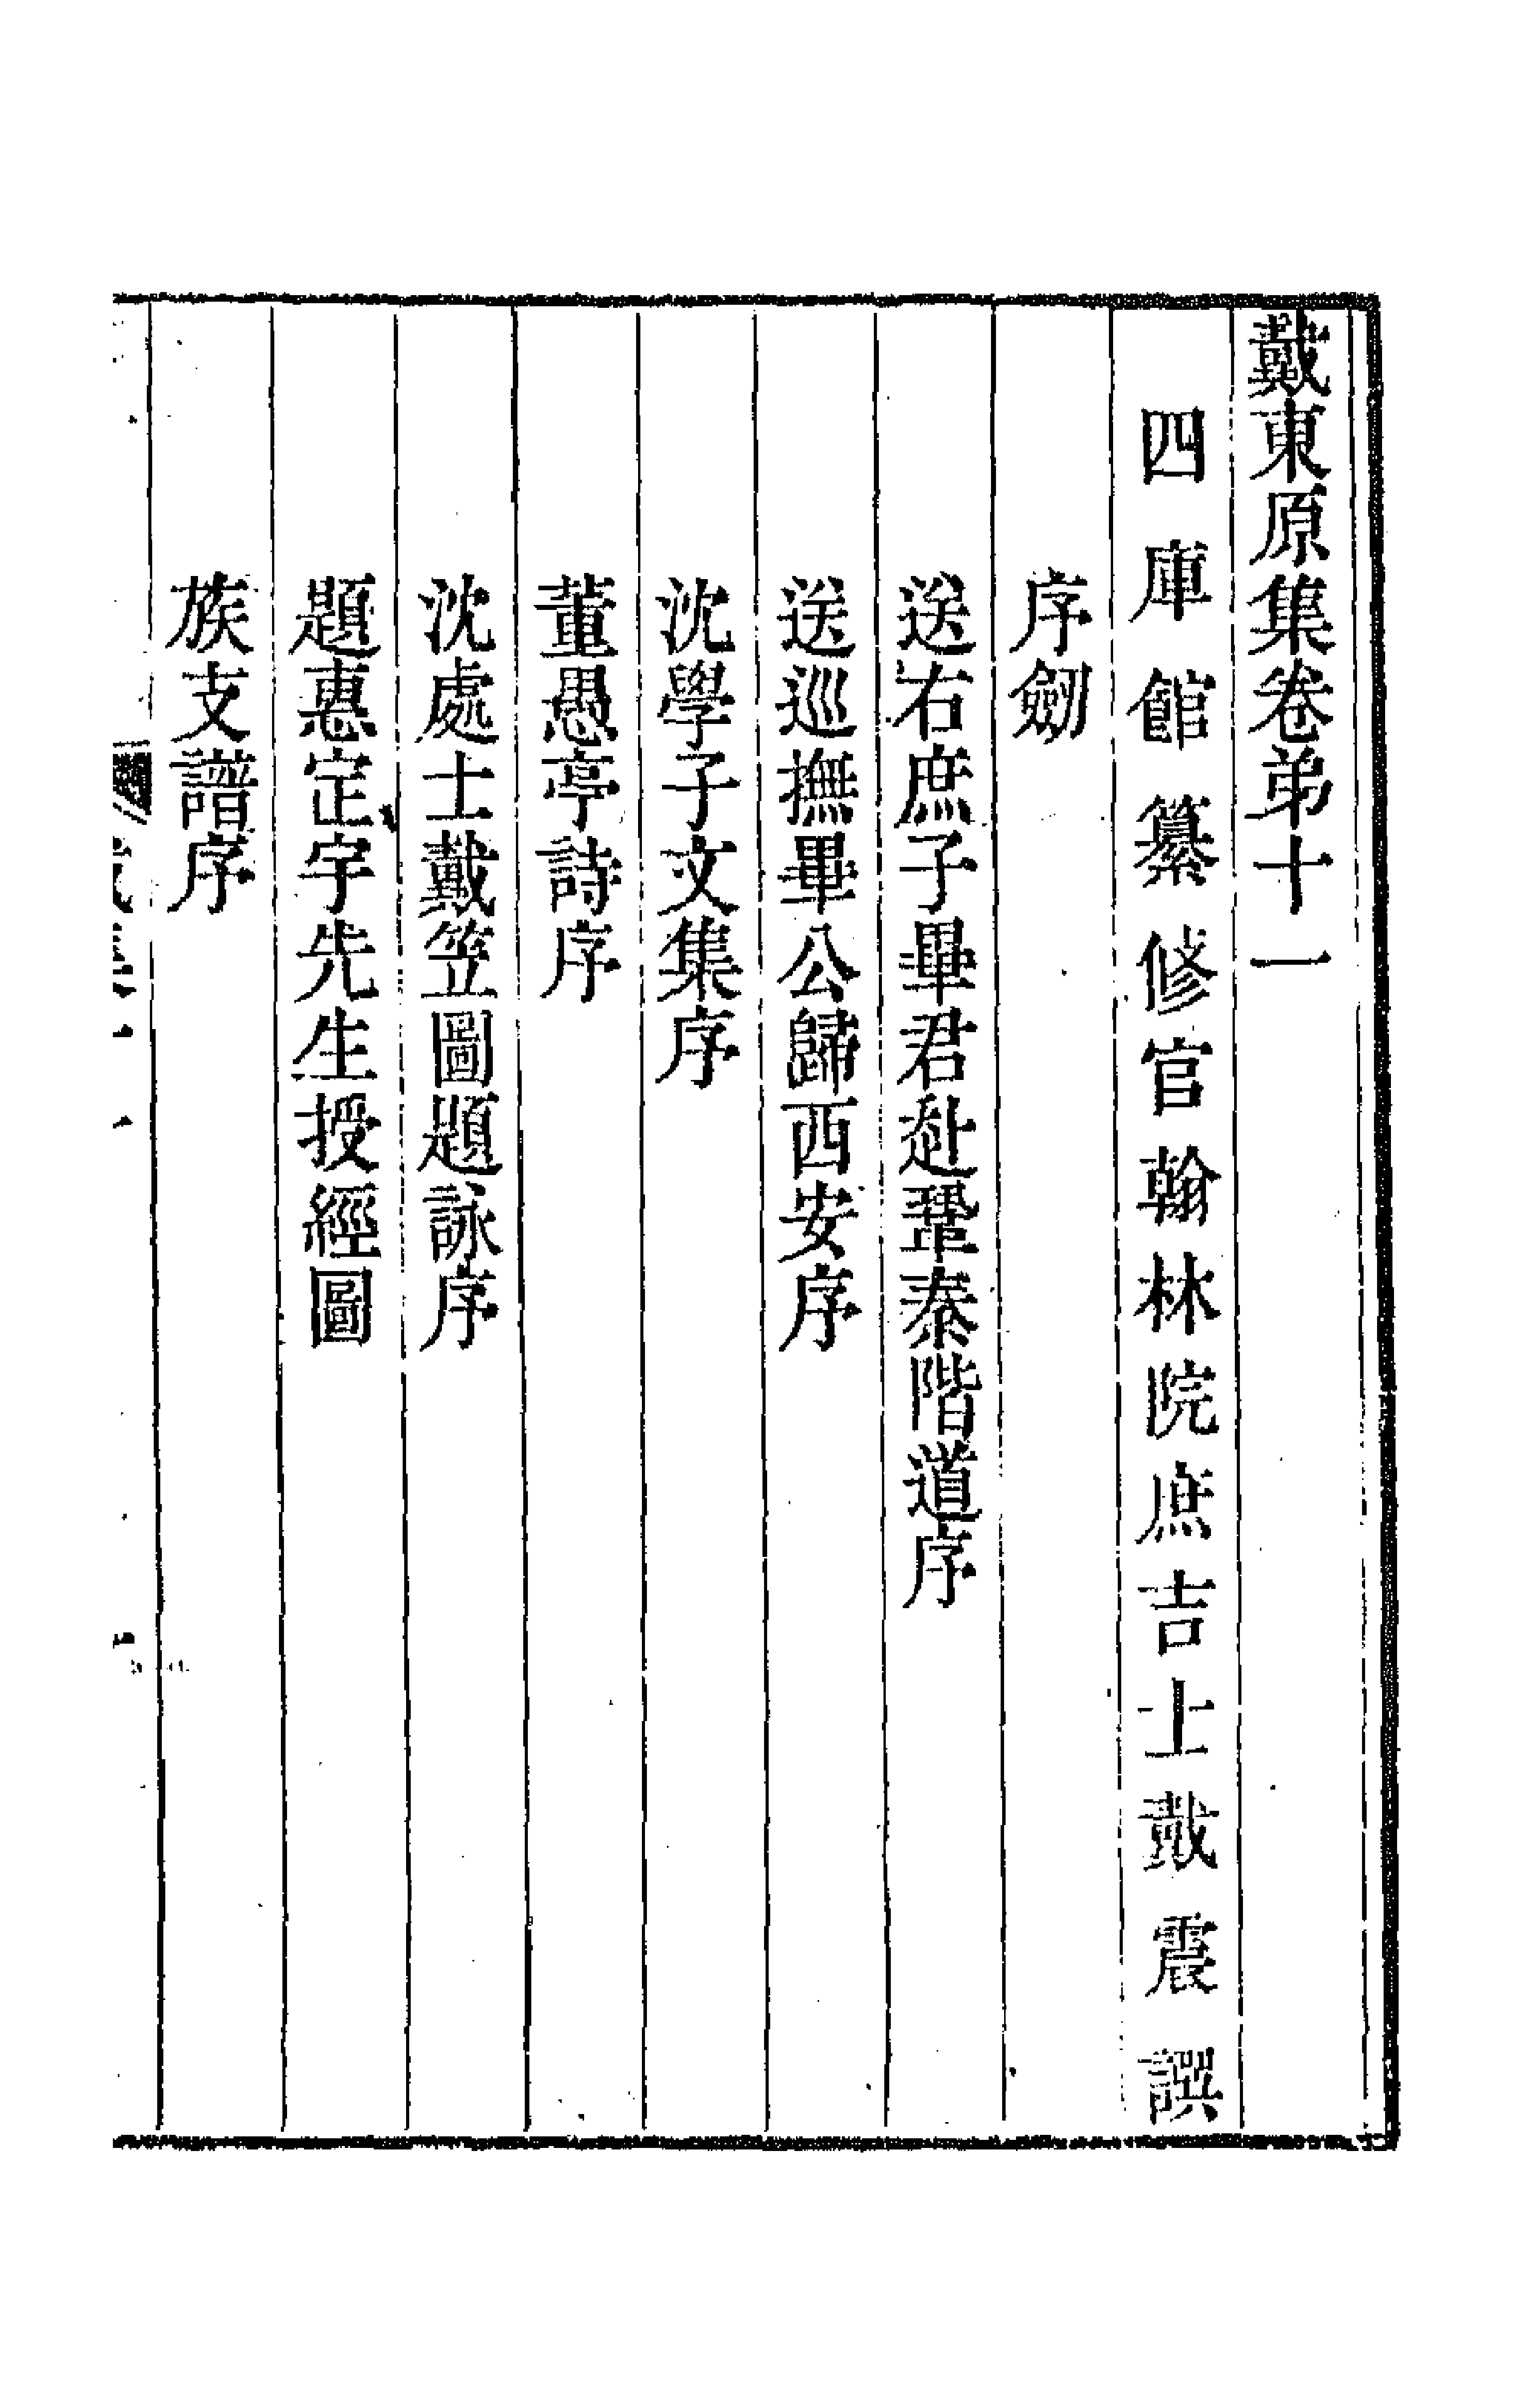 戴東原集卷弟十一
四庫館纂修官翰林院庶吉士戴震譔
序劒
送右庶子畢君赴鞏秦階道序
送巡撫畢公歸西安序
沈學子文集序
董愚亭詩序
沈處士戴笠圖題詠序
題惠定宇先生授經圖
族支譜序